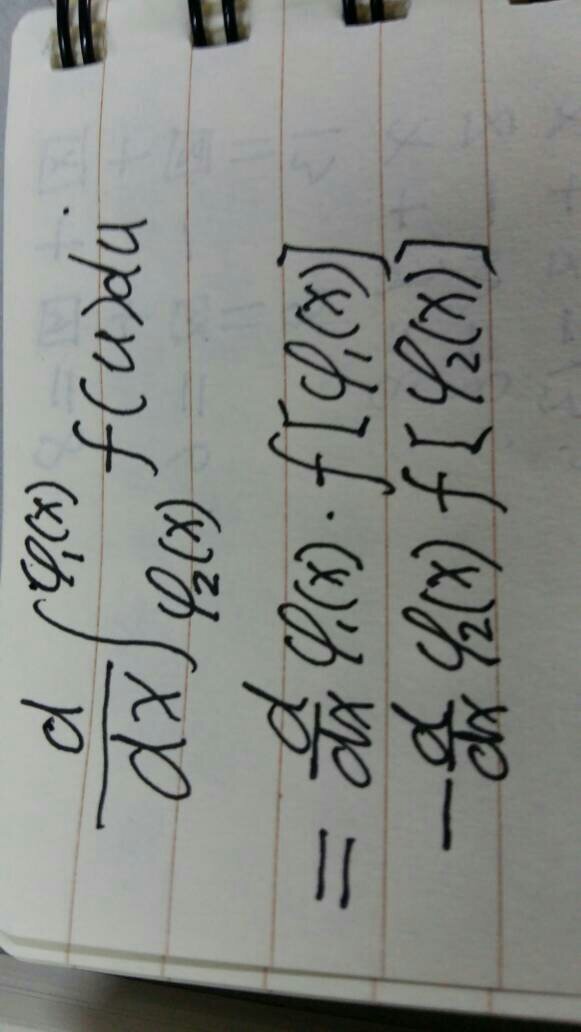 d/dx ∫_{φ₂(x)}^{φ₁(x)} f(u)du.
= d/dx φ₁(x) · f[φ₁(x)]
- d/dx φ₂(x) f[φ₂(x)]